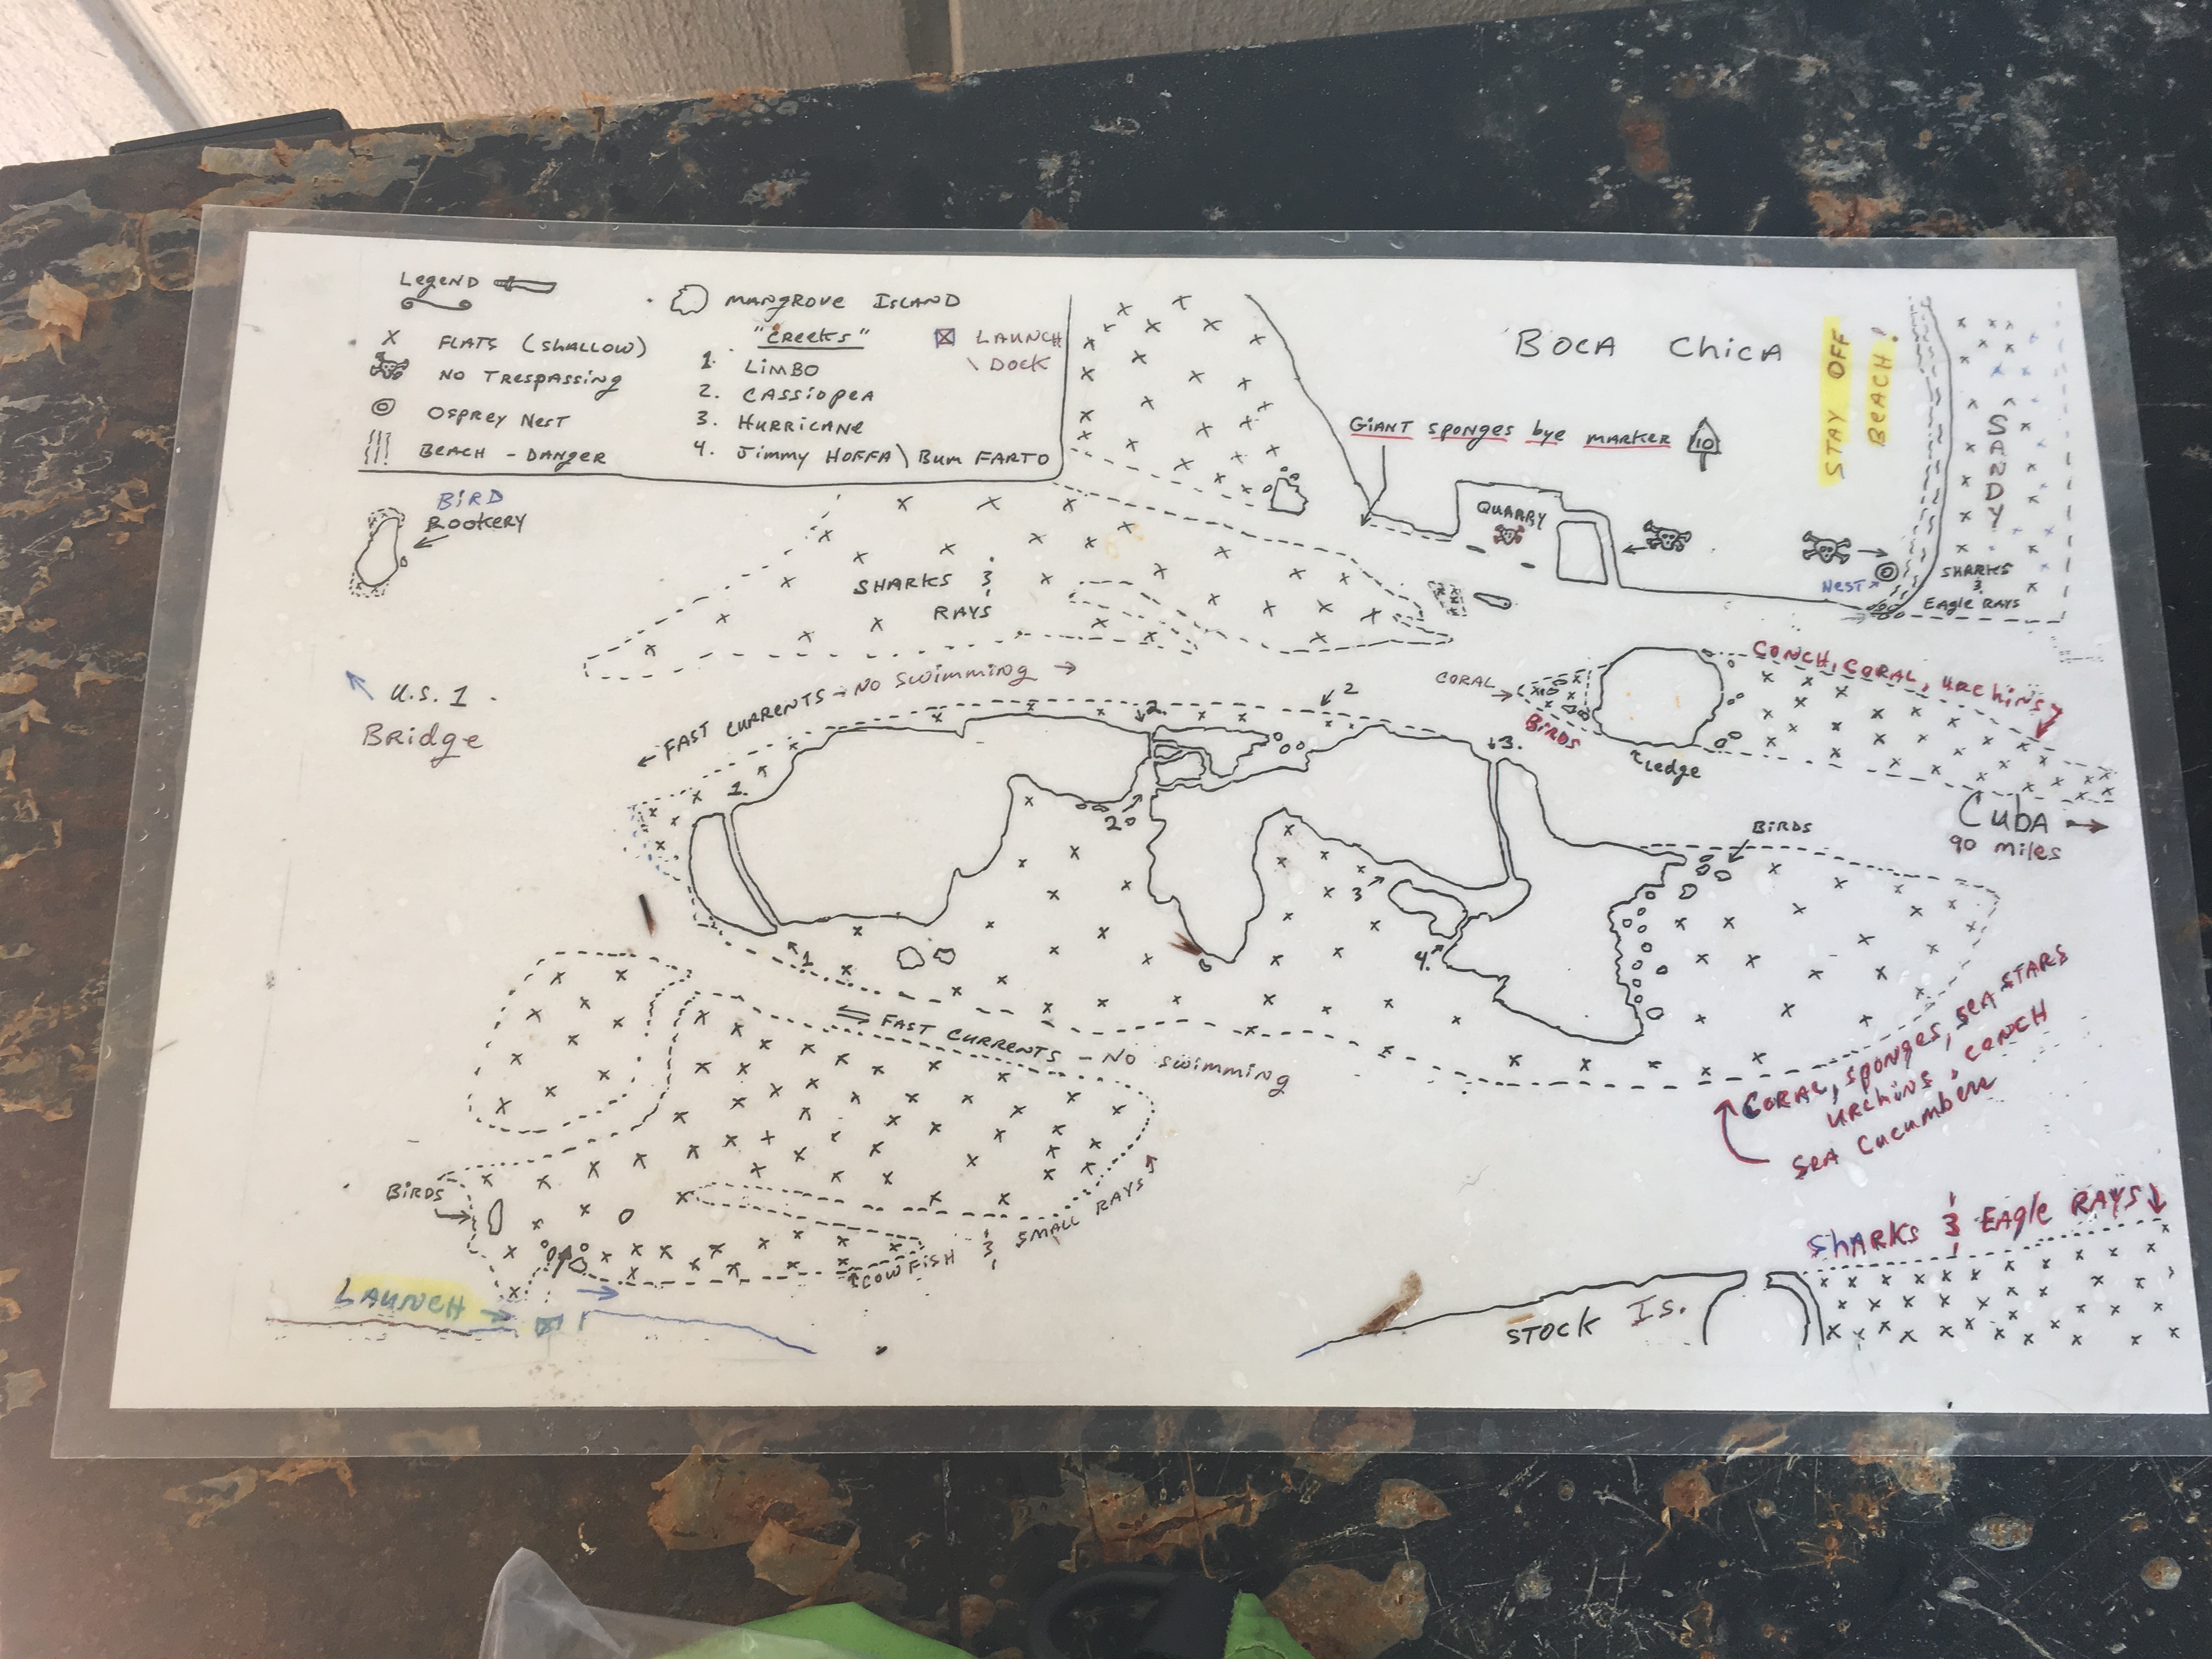 Legend
X FLATS (SHALLOW)
NO TRESPASSING
OSPREY NEST
BEACH - DANGER
MANGROVE ISLAND
"CREEKS"
1. LIMBO
2. CASSIOPEA
3. HURRICANE
4. Jimmy HOFFA\BUM FARTO
LAUNCH
\ DOCK
BOCA CHICA
STAY OFF
BEACH!
SANDY
GIANT sponges bye marker 10
BIRD
ROOKERY
QUARRY
NEST
SHARKS
&
Eagle RAYS
SHARKS &
RAYS
U.S. 1
BRIDGE
FAST CURRENTS - NO SWIMMING
CORAL
BIRDS
CONCH, CORAL, URCHINS
Ledge
2
2.
3.
1.
2
CUBA
90 miles
BIRDS
3
4.
1
FAST CURRENTS - NO SWIMMING
CORAL, SPONGES, SEA STARS
URCHINS, CONCH
SEA CUCUMBER
BIRDS
COWFISH & SMALL RAYS
SHARKS & EAGLE RAYS
LAUNCH
STOCK IS.